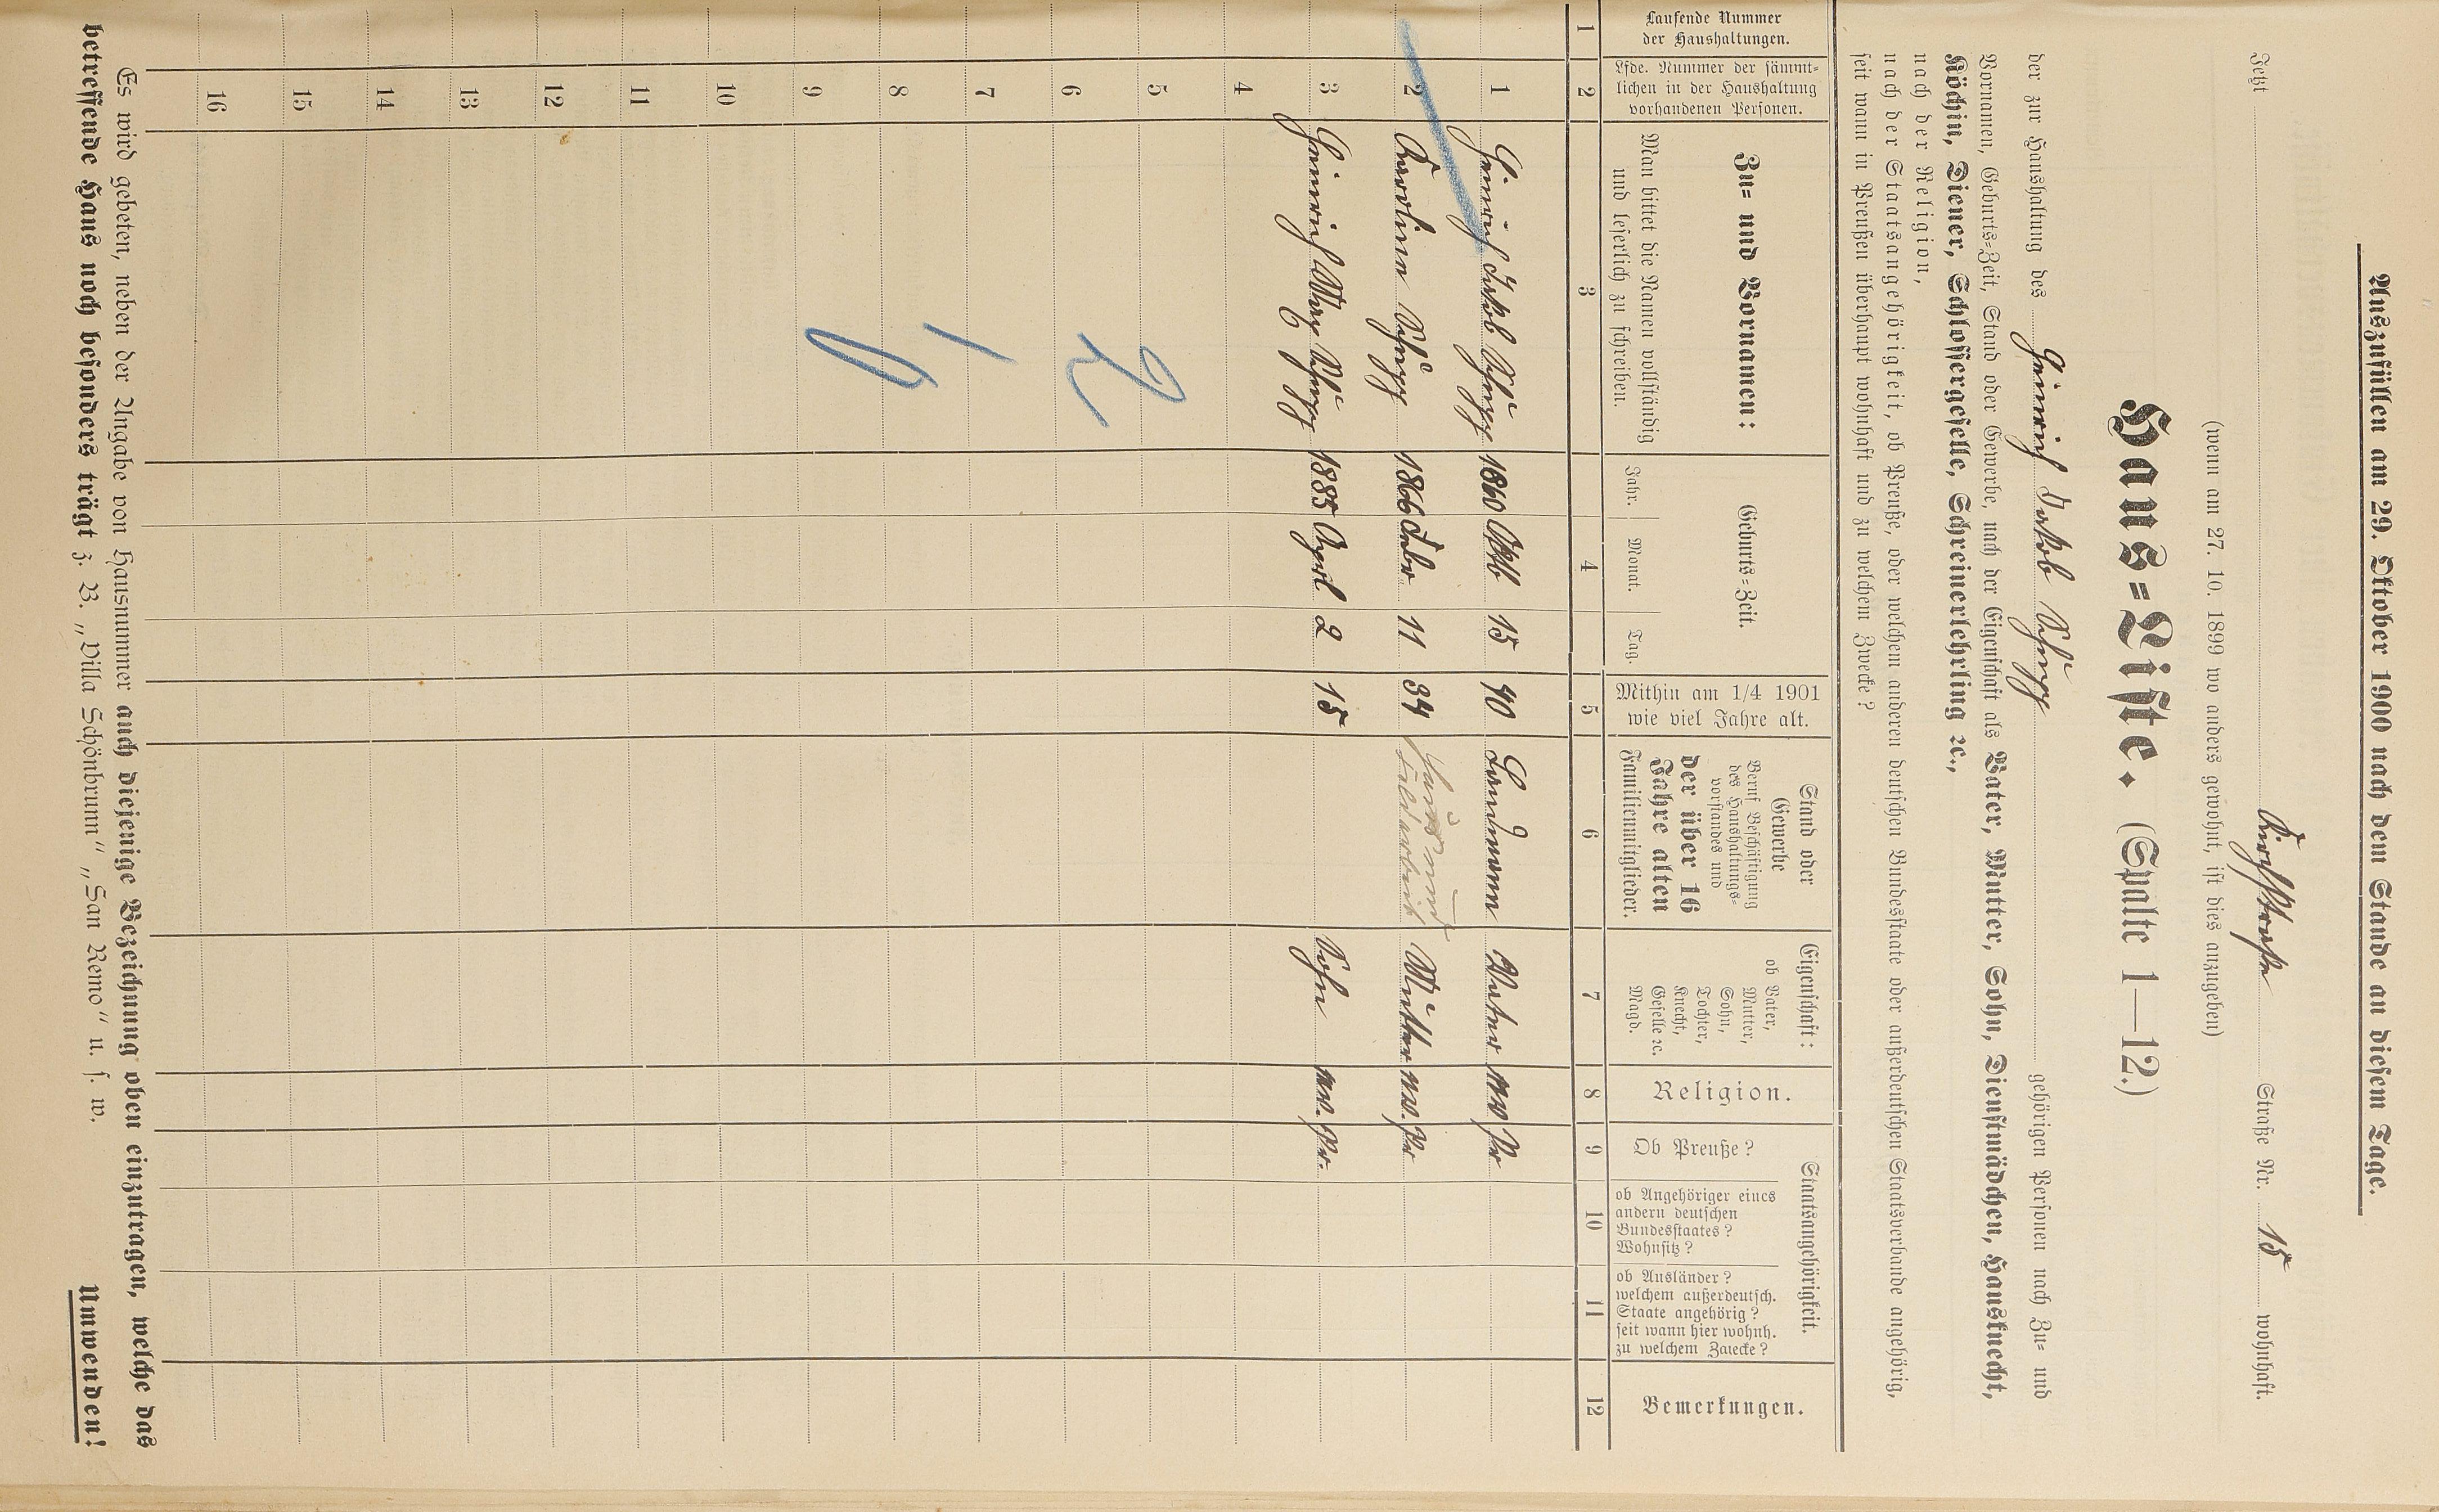 Auszufüllen am 29. Oktober 1900 nach dem Stande an diesem Tage.
Jetzt Kirchstraße Straße Nr. 15 wohnhaft.
(wenn am 27. 10. 1899 wo anders gewohnt, ist dies anzugeben)
Haus=Liste. (Spalte 1—12.)
der zur Haushaltung des Heinrich Jakob gehörigen Personen nach Zu= und
Vornamen, Geburts=Zeit, Stand oder Gewerbe, nach der Eigenschaft als Vater, Mutter, Sohn, Dienstmädchen, Hausknecht,
Köchin, Diener, Schlossergeselle, Schreinerlehrling ꝛc.,
nach der Religion,
nach der Staatsangehörigkeit, ob Preuße, oder welchem anderen deutschen Bundesstaate oder außerdeutschen Staatsverbande angehörig,
seit wann in Preußen überhaupt wohnhaft und zu welchem Zwecke?
Laufende Nummer
der Haushaltungen.
Lfde. Nummer der sämmt-
lichen in der Haushaltung
vorhandenen Personen.
Zu= und Vornamen:
Man bittet die Namen vollständig
und leserlich zu schreiben.
Geburts=Zeit.
Jahr. Monat. Tag.
Mithin am 1/4 1901
wie viel Jahre alt.
Stand oder
Gewerbe
Beruf Beschäftigung
des Haushaltungs-
vorstandes und
der über 16
Jahre alten
Familienmitglieder.
Eigenschaft:
ob Vater,
Mutter,
Sohn,
Tochter,
Knecht,
Geselle ꝛc.
Magd.
Religion.
Staatsangehörigkeit.
Ob Preuße?
ob Angehöriger eines
andern deutschen
Bundesstaates?
Wohnsitz?
ob Ausländer?
welchem außerdeutsch.
Staate angehörig?
seit wann hier wohnh.
zu welchem Zwecke?
Bemerkungen.
1 2 3 4 5 6 7 8 9 10 11 12
1 Heinrich Jakob 1860 Oktb 15 40 Landmann Vater ev Pr
2 Karoline 1866 Febr 11 34 Haus und Feldarbeit Mutter ev. Pr
3 Heinrich 1885 April 2 15 Sohn ev. Pr.
4
5
6
7
8
9
10
11
12
13
14
15
16
2
1
Es wird gebeten, neben der Angabe von Hausnummer auch diejenige Bezeichnung oben einzutragen, welche das
betreffende Haus noch besonders trägt z. B. „Villa Schönbrunn“ „San Remo“ u. s. w.
Umwenden!